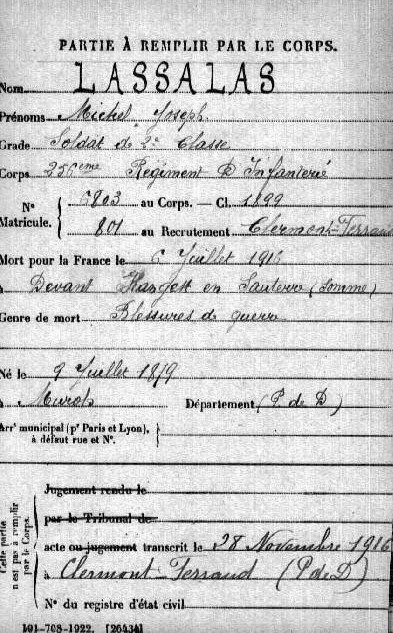 PARTIE À REMPLIR PAR LE CORPS.
Nom LASSALAS
Prénoms Michel Joseph
Grade Soldat de 2e Classe
Corps Régiment D'Infanterie
Nº Matricule. { au Corps. — Cl. 1899
801 au Recrutement Clermont-Ferrand
Mort pour la France le 6 Juillet
à Devant Hangest en Santerre (Somme)
Genre de mort Blessures de guerre
Né le 9 Juillet 1879
à Murols Département (P de D)
Arrt municipal (pr Paris et Lyon),
à défaut rue et Nº.
Cette partie
n'est pas à remplir
par le Corps.
Jugement rendu le
par le Tribunal de
acte ou jugement transcrit le 28 Novembre 1916
à Clermont-Ferrand (P de D)
Nº du registre d'état civil
101-708-1922. [26434]